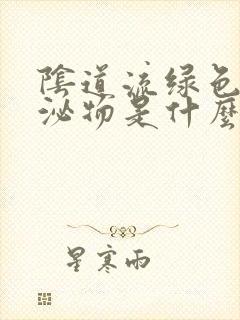 陰道流绿色
泌物是什麼
星寒雨